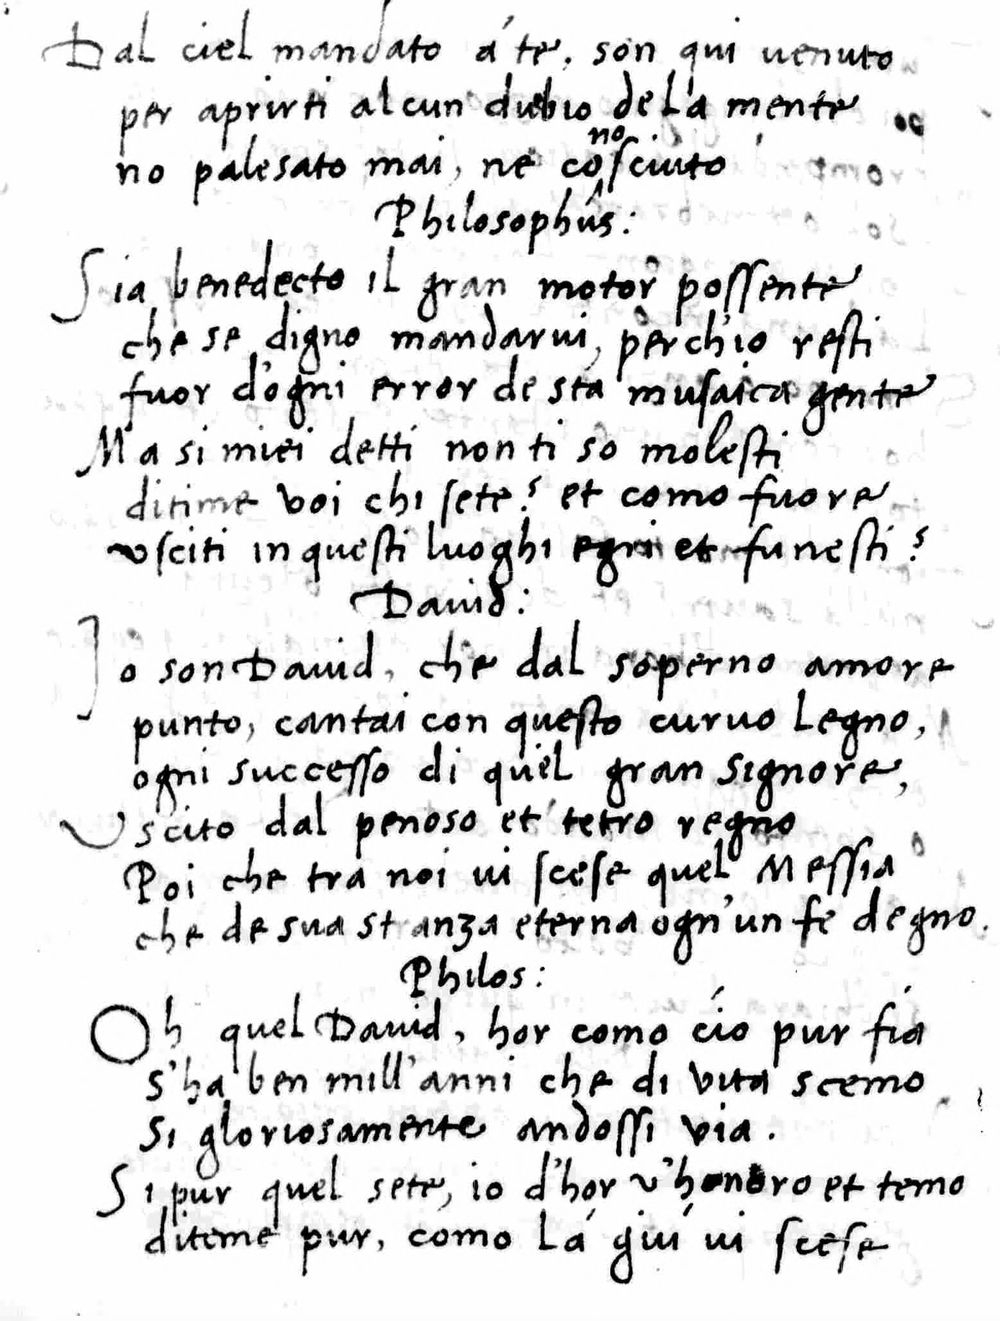 Dal ciel mandato á te, son qui venuto
per aprirti alcun dubio de la mente
no palesato mai, ne conosciuto
Philosophus:
Sia benedecto il gran motor possente
che se digno mandarui, perch'io resti
fuor d'ogni error de sta musaica gente
Ma si miei detti non ti so molesti
ditime voi chi sete? et como fuore
vsciti in questi luoghi egri et funesti?
Dauid:
Io son Dauid, che dal soperno amore
punto, cantai con questo curuo legno,
ogni successo di quel gran signore,
Vscito dal penoso et tetro regno
Poi che tra noi ui scese quel Messia
che de sua stanza eterna ogn'un fe degno.
Philos:
Oh quel Dauid, hor como ció pur fia
s'ha ben mill'anni che di vita scemo
Si gloriosamente andossi via.
Si pur quel sete, io d'hor v'honoro et temo
diteme pur, como lá giú ui scese